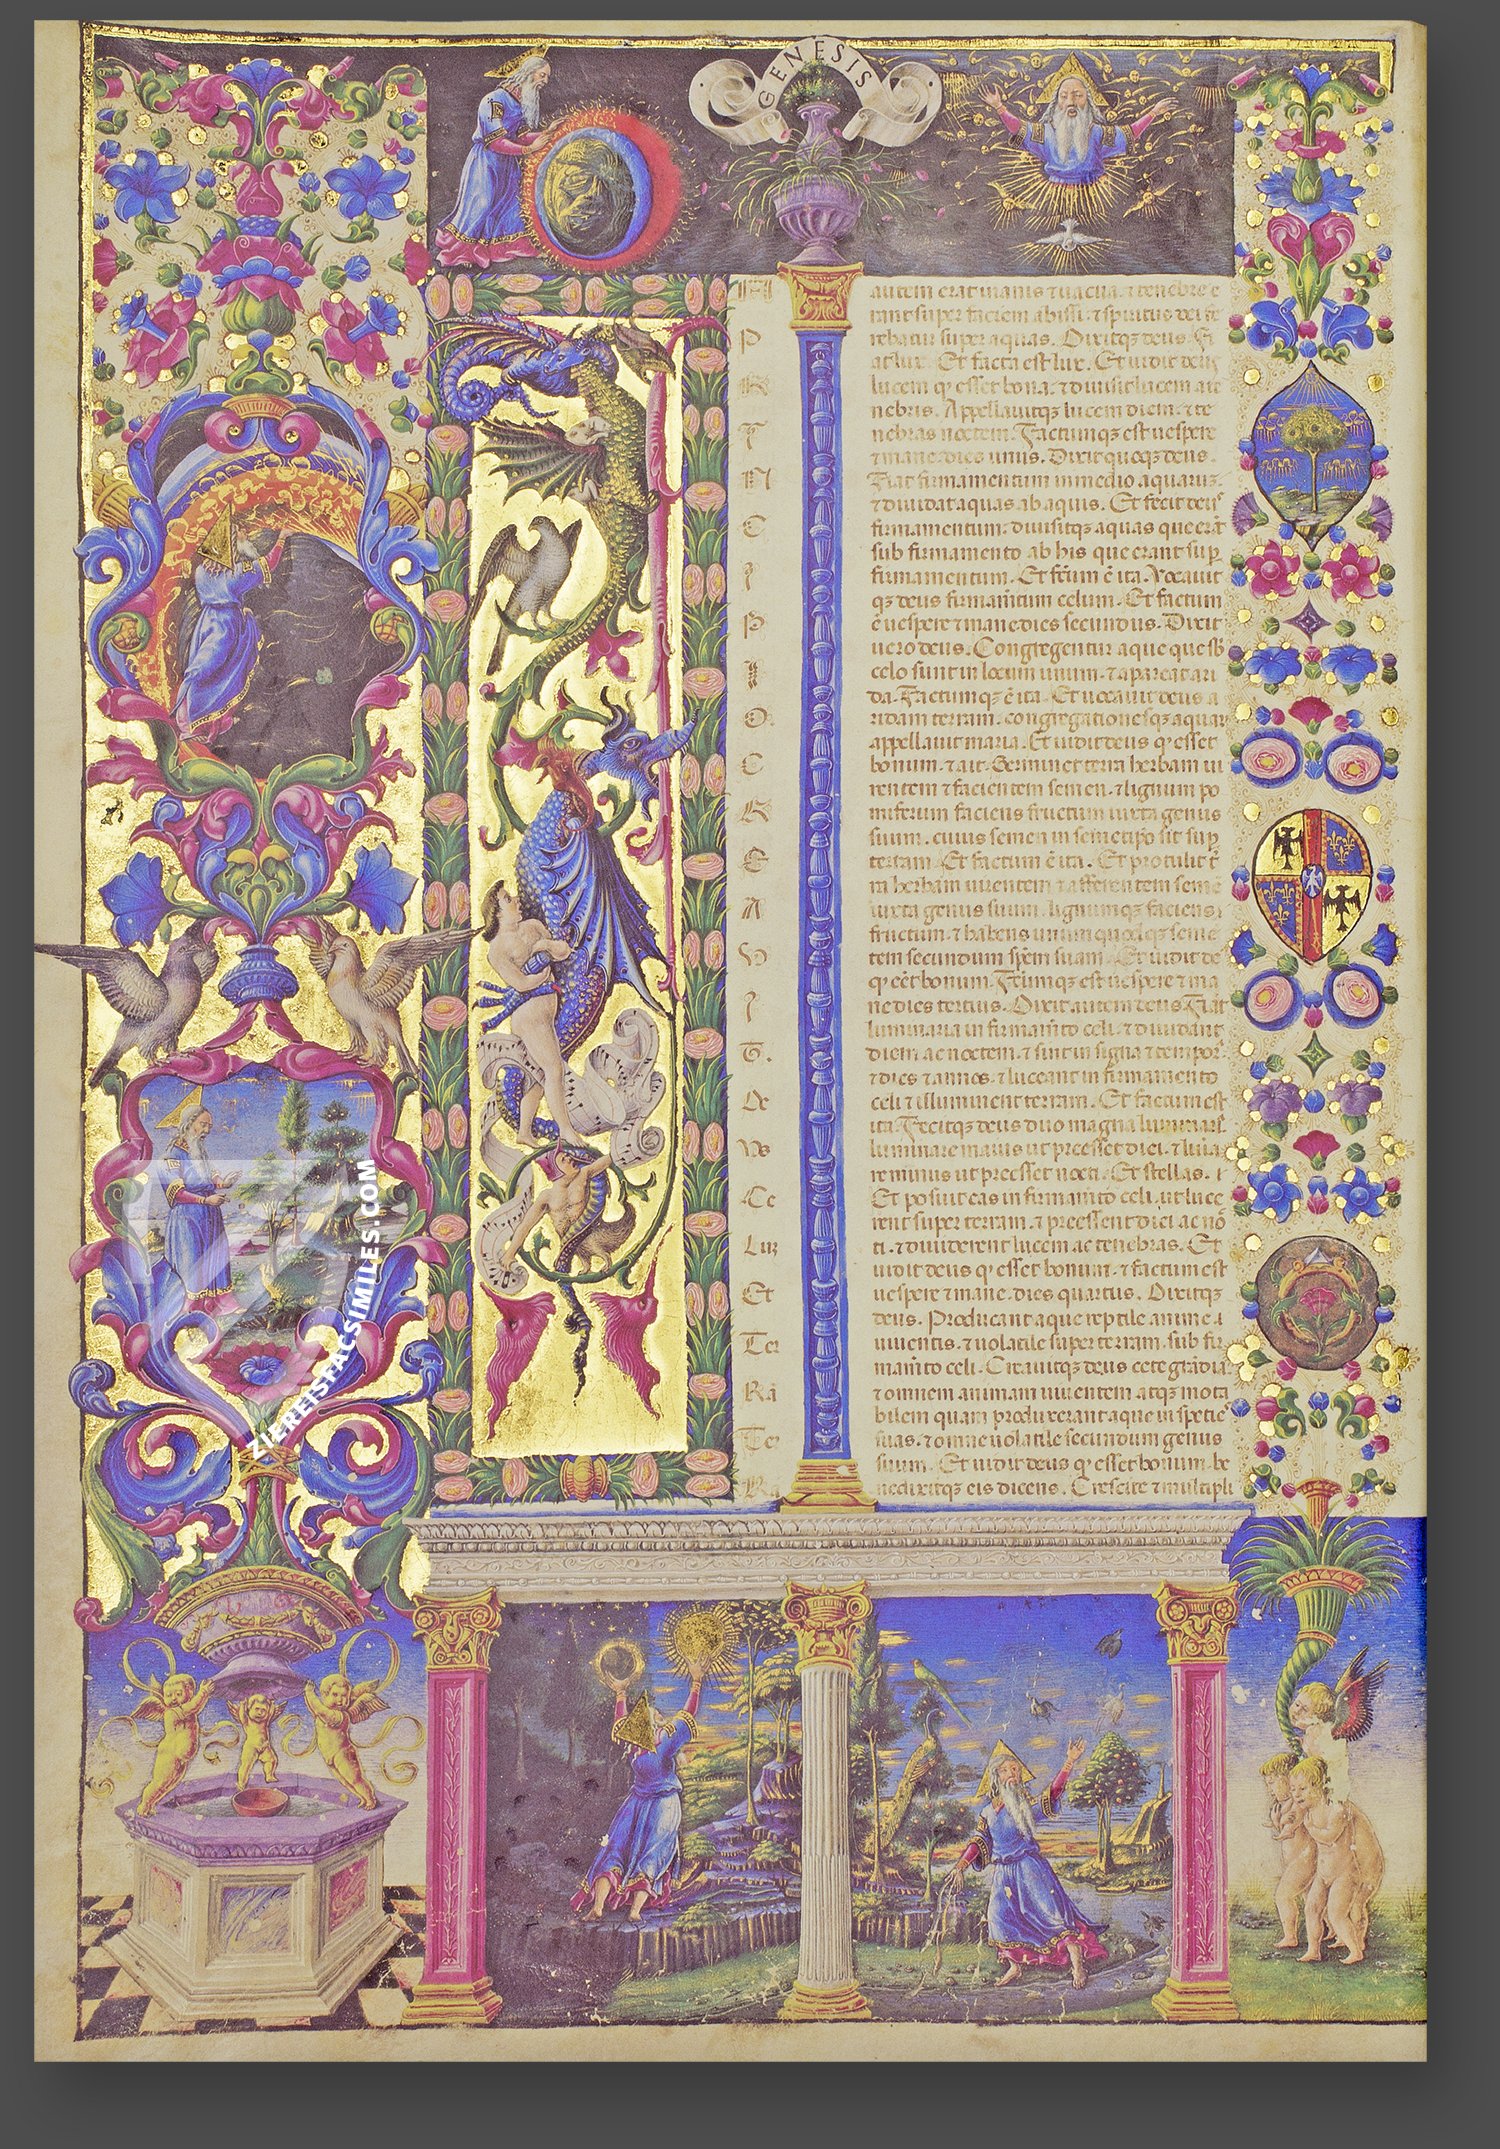 GENESIS
P
R
I
N
C
I
P
I
O
C
R
E
A
V
I
T.
DE
VS
Ce
Luz
Et
Ter
Rā
Ter
Ra
autem erat inanis ⁊ uacua. ⁊ tenebre e
rant super faciem abissi. ⁊ spiritus dei fe
rebatur super aquas. Dixitqȝ deus. Fi
at lux. Et facta est lux. Et uidit deus
lucem qꝫ esset bona. ⁊ diuisit lucem a te
nebris. Appellauitqȝ lucem diem. ⁊ te
nebras noctem. Factumqȝ est uespere
⁊ mane dies unus. Dixit quoqȝ deus.
Fiat firmamentum in medio aquarum.
⁊ diuidat aquas ab aquis. Et fecit deus
firmamentum. diuisitqȝ aquas que erāt
sub firmamento ab his que erant sup̱
firmamentum. Et fcūm ē ita. Vocauit
qȝ deus firmam̄tum celum. Et factum
ē uespere ⁊ mane dies secundus. Dixit
uero deus. Congregentur aque que sb̄
celo sunt in locum unum. ⁊ apareat ari
da. Factumqȝ ē ita. Et uocauit deus a
ridam terram. congregationesqȝ aquar
appellauit maria. Et uidit deus qꝫ esset
bonum. ⁊ ait. Germinet terra herbam ui
rentem ⁊ facientem semen. ⁊ lignum po
miferum faciens fructum iuxta genus
suum. cuius semen in semetipo sit sup̱
terram. Et factum ē ita. Et protulit t̄
ra herbam uirentem ⁊ afferentem semē
iuxta genus suum. lignumqȝ faciens
fructum. ⁊ habens unumquodqȝ semē
tem secundum spēm suam. Et uidit de
qꝫ eēt bonum. Fcūmqȝ est uespere ⁊ ma
ne dies tertius. Dixit autem deus. Fiāt
luminaria in firmam̄to celi. ⁊ diuidant
diem ac noctem. ⁊ sint in signa ⁊ tempor̄.
⁊ dies ⁊ annos. ⁊ luceant in firmamento
celi ⁊ illuminent terram. Et factum est
ita. Fecitqȝ deus duo magna luminar̄.
luminare maius ut preesset diei. ⁊ lūīa
re minus ut preesset nocti. Et stellas. ⁊
Et posuit eas in firmam̄to celi. ut luce
rent super terram. ⁊ preessent diei ac no
cti. ⁊ diuiderent lucem ac tenebras. Et
uidit deus qꝫ esset bonum. ⁊ factum est
uespere ⁊ mane. dies quartus. Dixitqȝ
deus. Producant aque reptile anime .i
uiuentis. ⁊ uolatile super terram. sub fir
mam̄to celi. Creauitqȝ deus cete grādia
⁊ omnem animam uiuentem atqȝ mota
bilem quam produxerant aque in spetie
suas. ⁊ omne uolatile secundum genus
suum. Et uidit deus qꝫ esset bonum. be
nedixitqȝ eis dicens. Crescite ⁊ multipli
ZIEREISFACSIMILES.COM